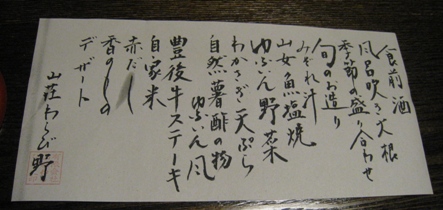 食前酒
風呂吹き大根
季節の盛り合わせ
旬のお造り
みぞれ汁
山女魚塩焼
ゆふいん野菜
わかさぎ天ぷら
自然薯酢の物
ゆふいん風
豊後牛ステーキ
自家米
赤だし
香のもの
デザート
山荘わらび野